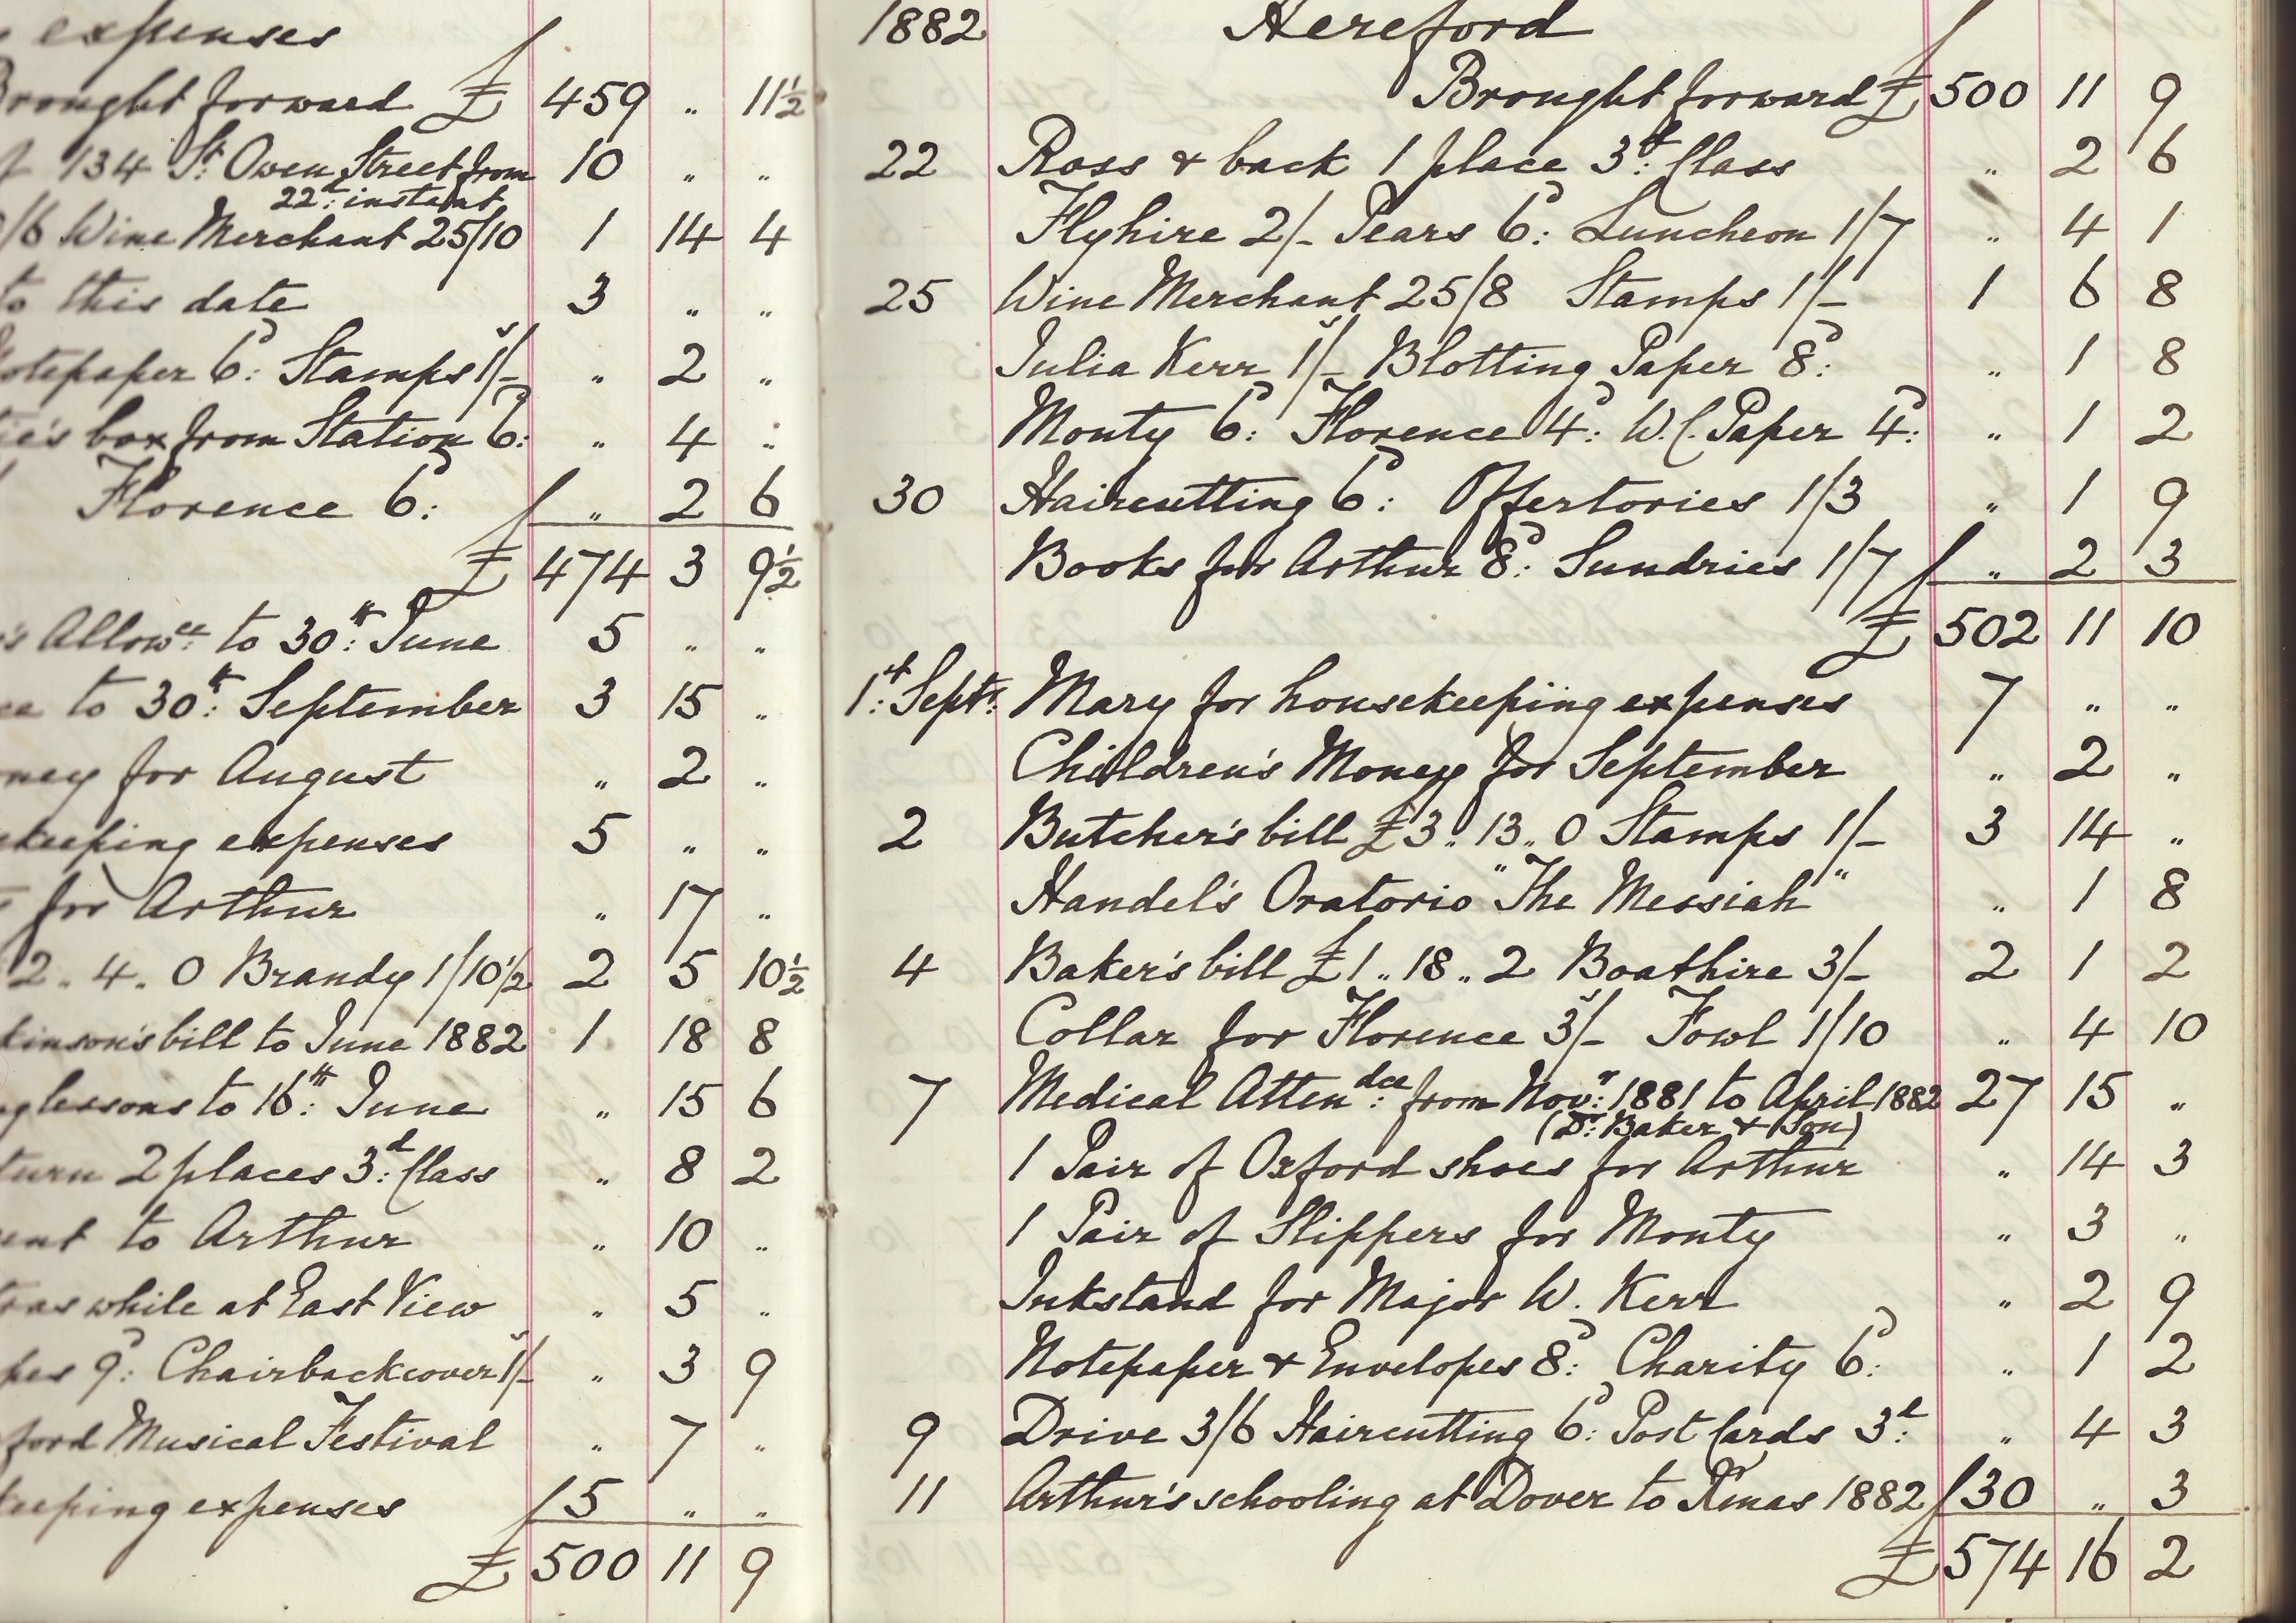 expenses
Brought forward £ 459 „ 11½
134 St. Owen Street from 10 „ „
22d: instant
/6 Wine Merchant 25/10 1 14 4
to this date 3 „ „
Notepaper 6d: Stamps 1s/- „ 2 „
box from Station 6d: „ 4 „
Florence 6d: „ 2 6
£ 474 3 9½
Allowce: to 30th: June 5 „ „
to 30th: September 3 15 „
for August „ 2 „
expenses 5 „ „
for Arthur „ 17 „
2 „ 4 „ 0 Brandy 1/10½ 2 5 10½
bill to June 1882 1 18 8
lessons to 16th: June „ 15 6
2 places 3d: Class „ 8 2
to Arthur „ 10 „
while at East View „ 5 „
9d: Chairbackcover 1s/- „ 3 9
Musical Festival „ 7 „
expenses 5 „ „
£ 500 11 9
1882 Hereford
Brought forward £ 500 11 9
22 Ross & back 1 place 3d: Class „ 2 6
Flyhire 2/- Pears 6d: Luncheon 1/7 „ 4 1
25 Wine Merchant 25/8 Stamps 1/- 1 6 8
Julia Kerr 1s/- Blotting Paper 8d: „ 1 8
Monty 6d: Florence 4d: W.C. Paper 4d: „ 1 2
30 Haircutting 6d: Offertories 1/3 „ 1 9
Books for Arthur 8d: Sundries 1/7 „ 2 3
£ 502 11 10
1st: Septr: Mary for housekeeping expenses 7 „ „
Children's Money for September „ 2 „
2 Butcher's bill £3 „ 13 „ 0 Stamps 1/- 3 14 „
Handel's Oratorio "The Messiah" „ 1 8
4 Baker's bill £1 „ 18 „ 2 Boathire 3/- 2 1 2
Collar for Florence 3s/- Fowl 1/10 „ 4 10
7 Medical Attendce: from Novr: 1881 to April 1882 27 15 „
(Dr: Baker & Son)
1 Pair of Oxford shoes for Arthur „ 14 3
1 Pair of Slippers for Monty „ 3 „
Inkstand for Major W. Kerr „ 2 9
Notepaper & Envelopes 8d: Charity 6d: „ 1 2
9 Drive 3/6 Haircutting 6d: Post Cards 3d: „ 4 3
11 Arthur's schooling at Dover to Xmas 1882 30 „ 3
£ 574 16 2